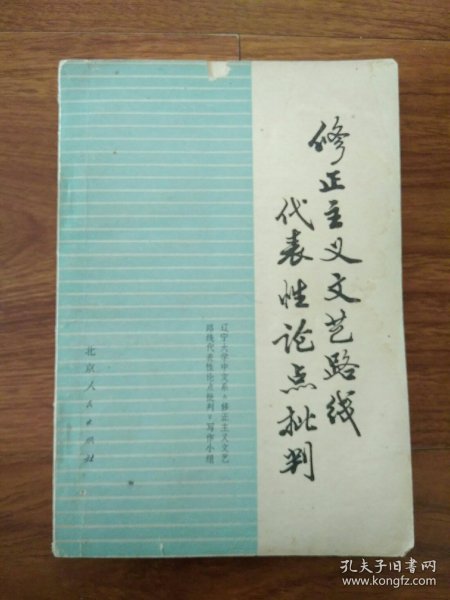 修正主义文艺路线
代表性论点批判
辽宁大学中文系《修正主义文艺
路线代表性论点批判》写作小组
北京人民出版社
孔夫子旧书网
www.kongfz.com